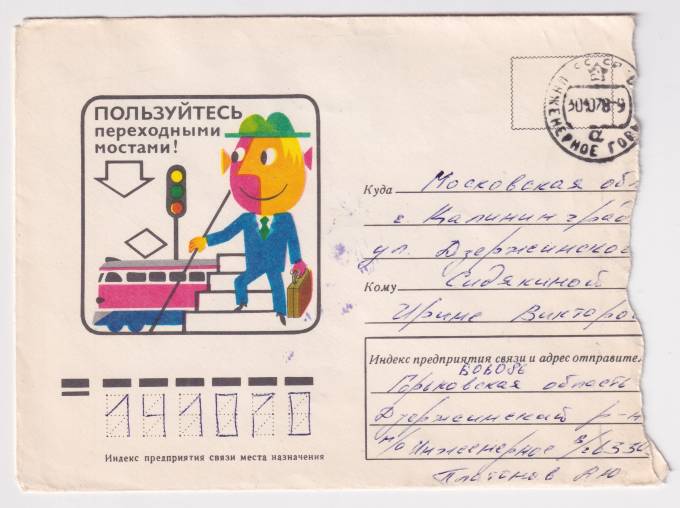 ПОЛЬЗУЙТЕСЬ
переходными
мостами!
СССР
ИНЖЕНЕРНОЕ ГОРЬ
301078-9
а
Куда Московская обл
г. Калининград
ул. Дзержинской
Кому Сидякиной
Ирине Викторо
Индекс предприятия связи и адрес отправите
606086
Горьковская область
Дзержинский р-н
п/о Инженерное в/ч 6330
Платонов А Ю
141070
Индекс предприятия связи места назначения